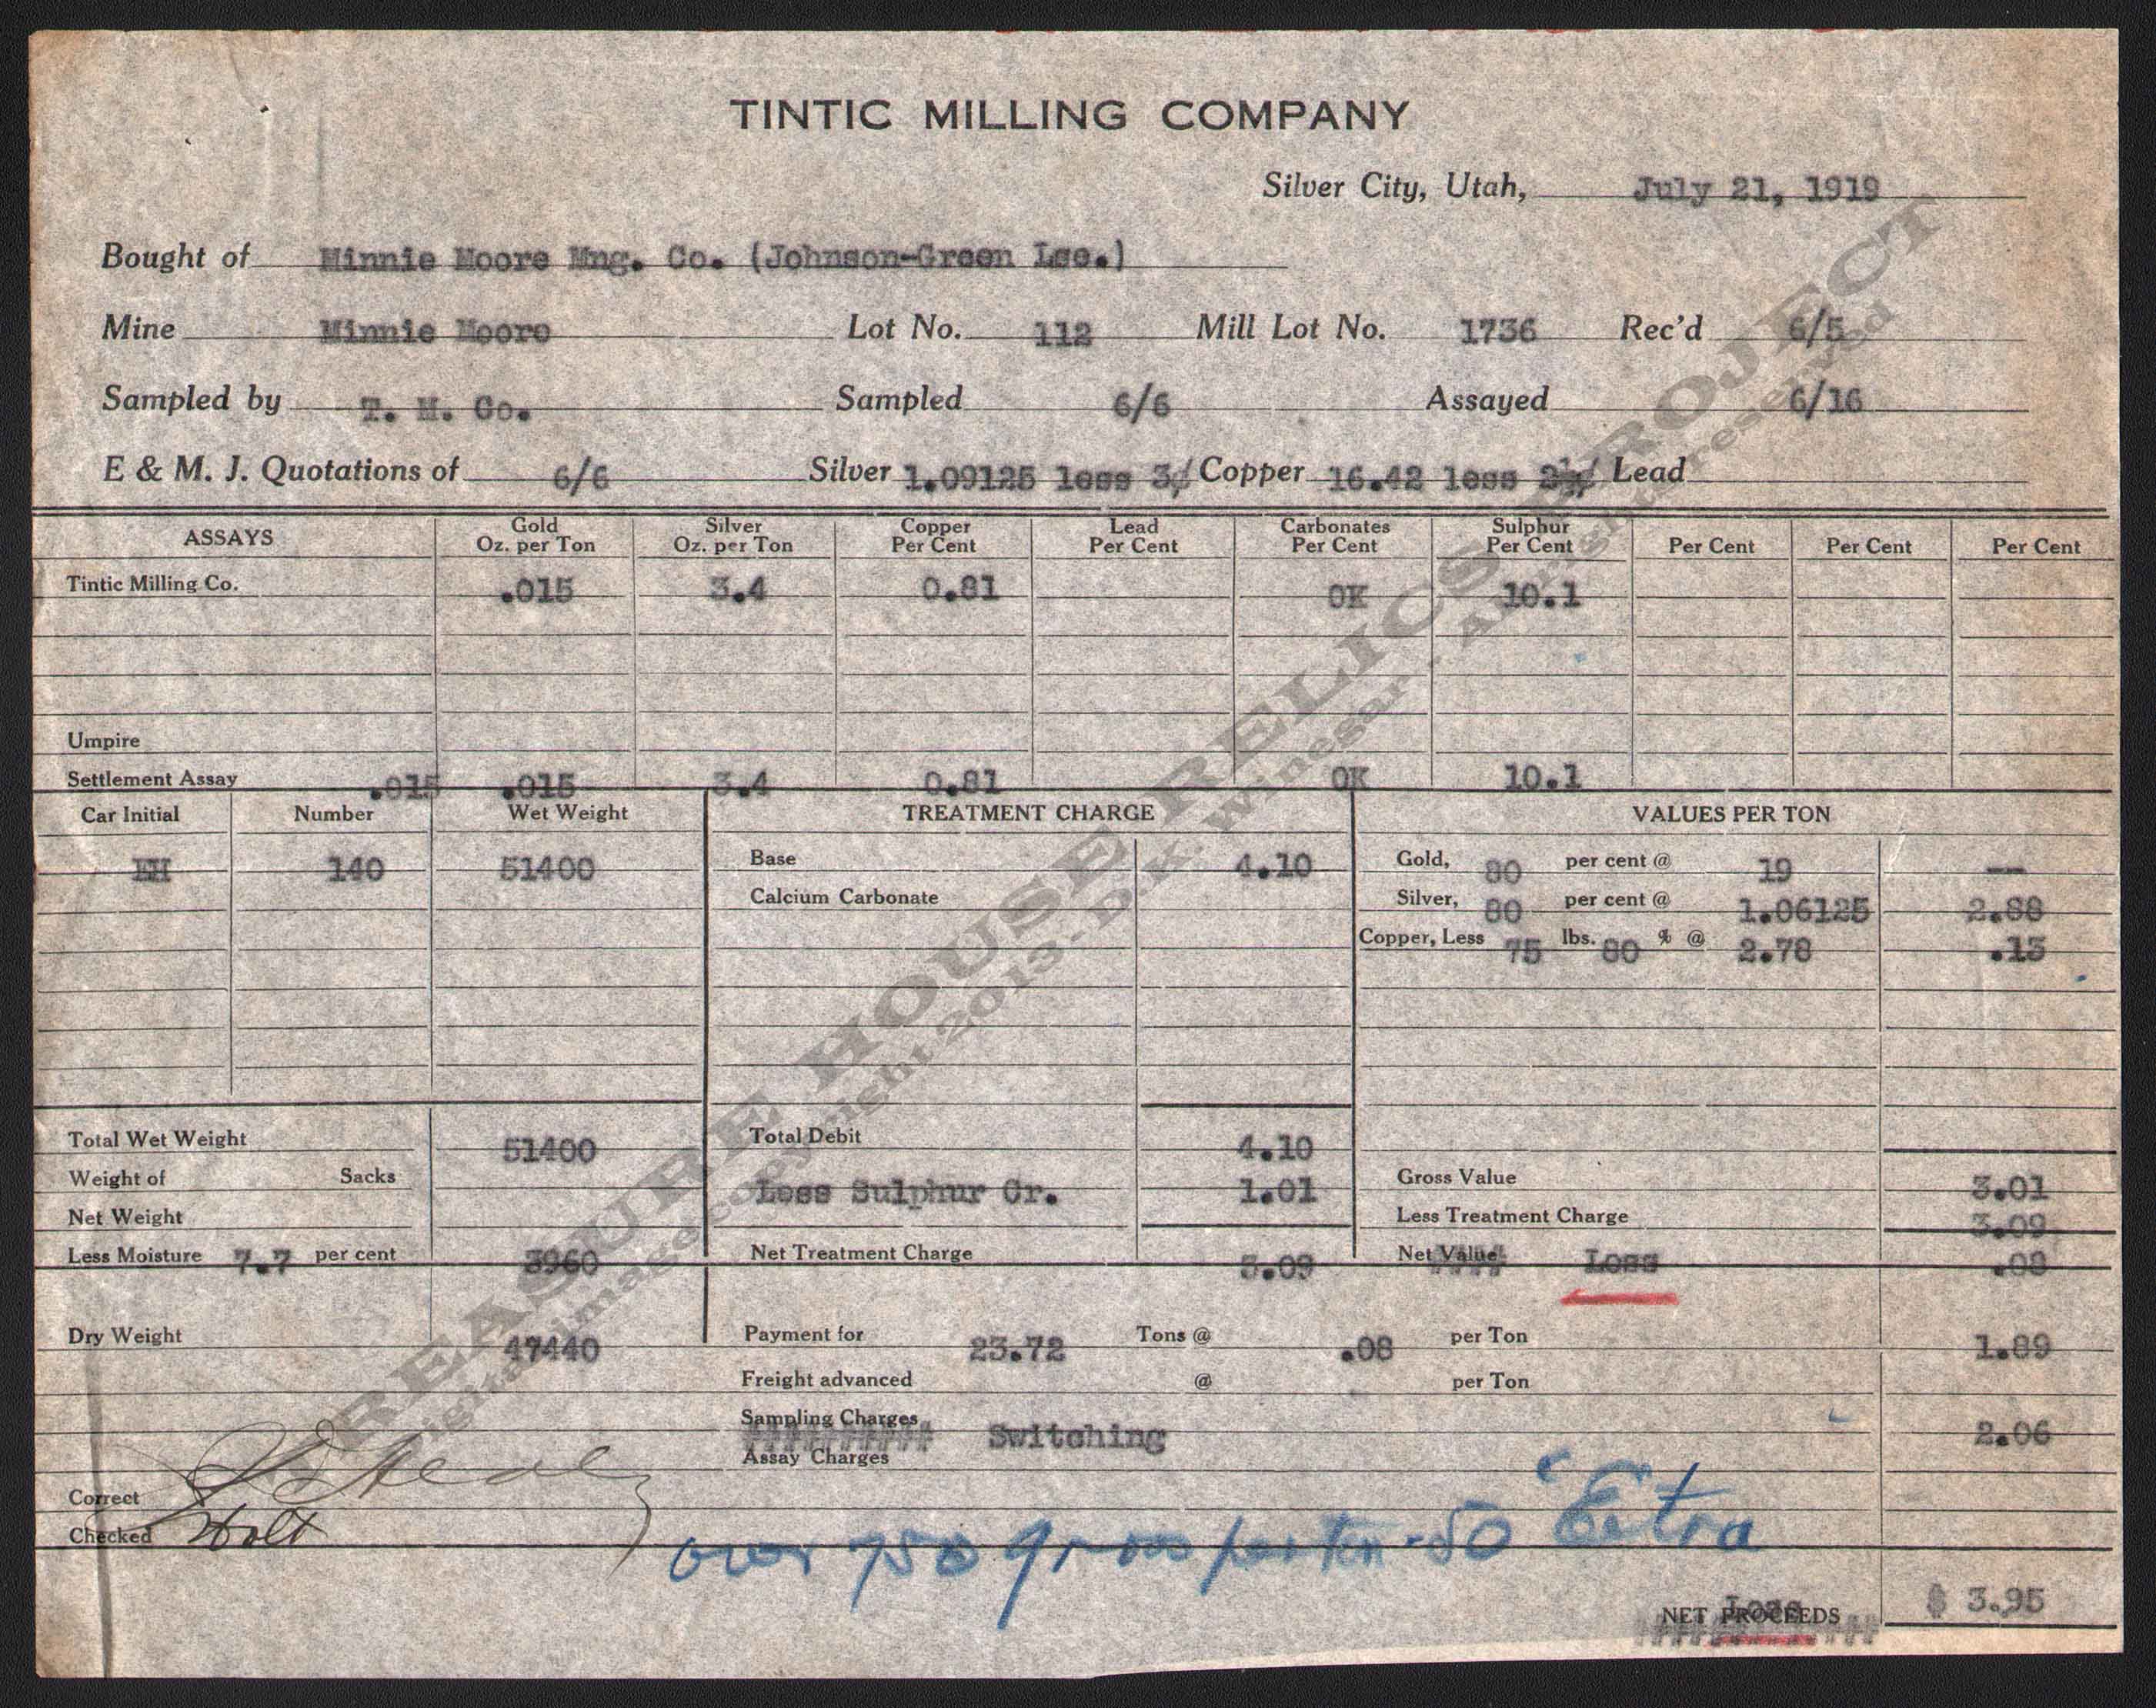 TINTIC MILLING COMPANY
Silver City, Utah, July 21, 1919
Bought of Minnie Moore Mng. Co. (Johnson-Green Lse.)
Mine Minnie Moore Lot No. 112 Mill Lot No. 1736 Rec'd 6/5
Sampled by T. M. Co. Sampled 6/6 Assayed 6/16
E & M. J. Quotations of 6/6 Silver 1.09125 less 3¢ Copper 16.42 less 2½¢ Lead
ASSAYS Gold Oz. per Ton Silver Oz. per Ton Copper Per Cent Lead Per Cent Carbonates Per Cent Sulphur Per Cent Per Cent Per Cent Per Cent
Tintic Milling Co. .015 3.4 0.81 OK 10.1
Umpire
Settlement Assay .015 .015 3.4 0.81 OK 10.1
Car Initial Number Wet Weight TREATMENT CHARGE VALUES PER TON
EH 140 51400 Base 4.10 Gold, 80 per cent @ 19 —
Calcium Carbonate Silver, 80 per cent @ 1.06125 2.88
Copper, Less 75 lbs. 80 % @ 2.78 .13
Total Wet Weight 51400 Total Debit 4.10
Weight of Sacks Less Sulphur Cr. 1.01 Gross Value 3.01
Net Weight Less Treatment Charge 3.09
Less Moisture 7.7 per cent 3960 Net Treatment Charge 3.09 Net Value Loss .08
Dry Weight 47440 Payment for 23.72 Tons @ .08 per Ton 1.89
Freight advanced @ per Ton
Sampling Charges Switching 2.06
Assay Charges
Correct Healy
Checked Holt
over 750 gross per ton - 50 c Extra
NET PROCEEDS Loss $ 3.95
TREASURE HOUSE RELICS PROJECT
Digital image copyright 2013 - D.K. Winesar - All rights reserved